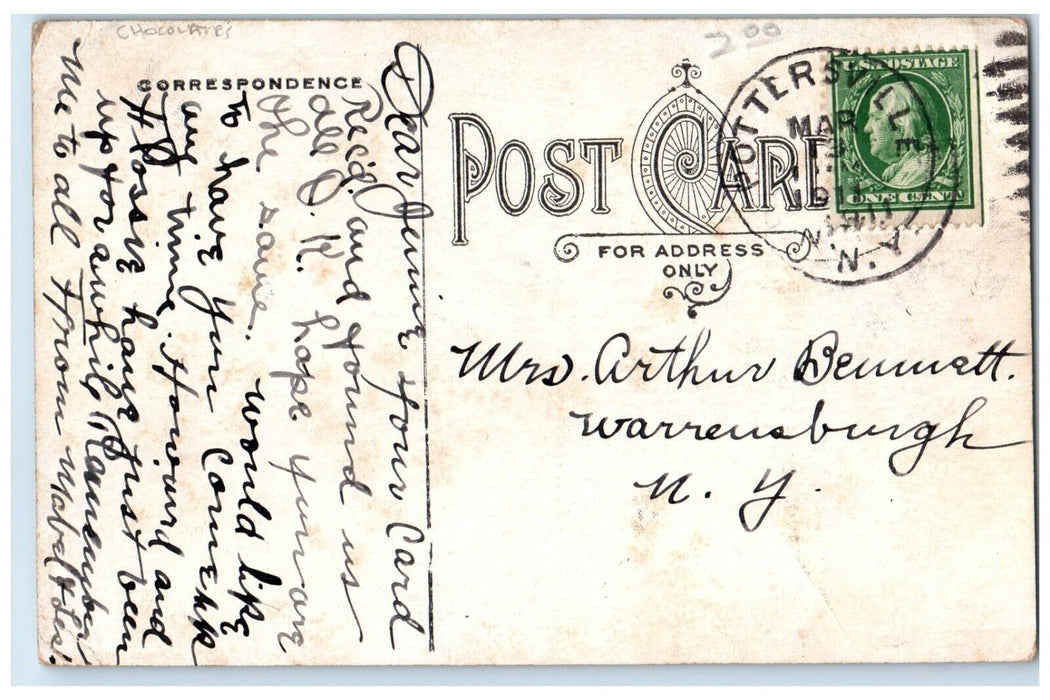 CHOCOLATES
2.00
CORRESPONDENCE
POST CARD
FOR ADDRESS
ONLY
POTTERSVILLE
MAR
1911
N.Y.
U.S. POSTAGE
ONE CENT
Dear Jennie your Card
Rec'd. and found us
all O. K. hope you are
the same. would like
to have you Come up
any time. Howard and
Flossie have just been
up for awhile. Remember
me to all From Mabel & Les.
Mrs. Arthur Bennett.
Warrensburgh
N. Y.